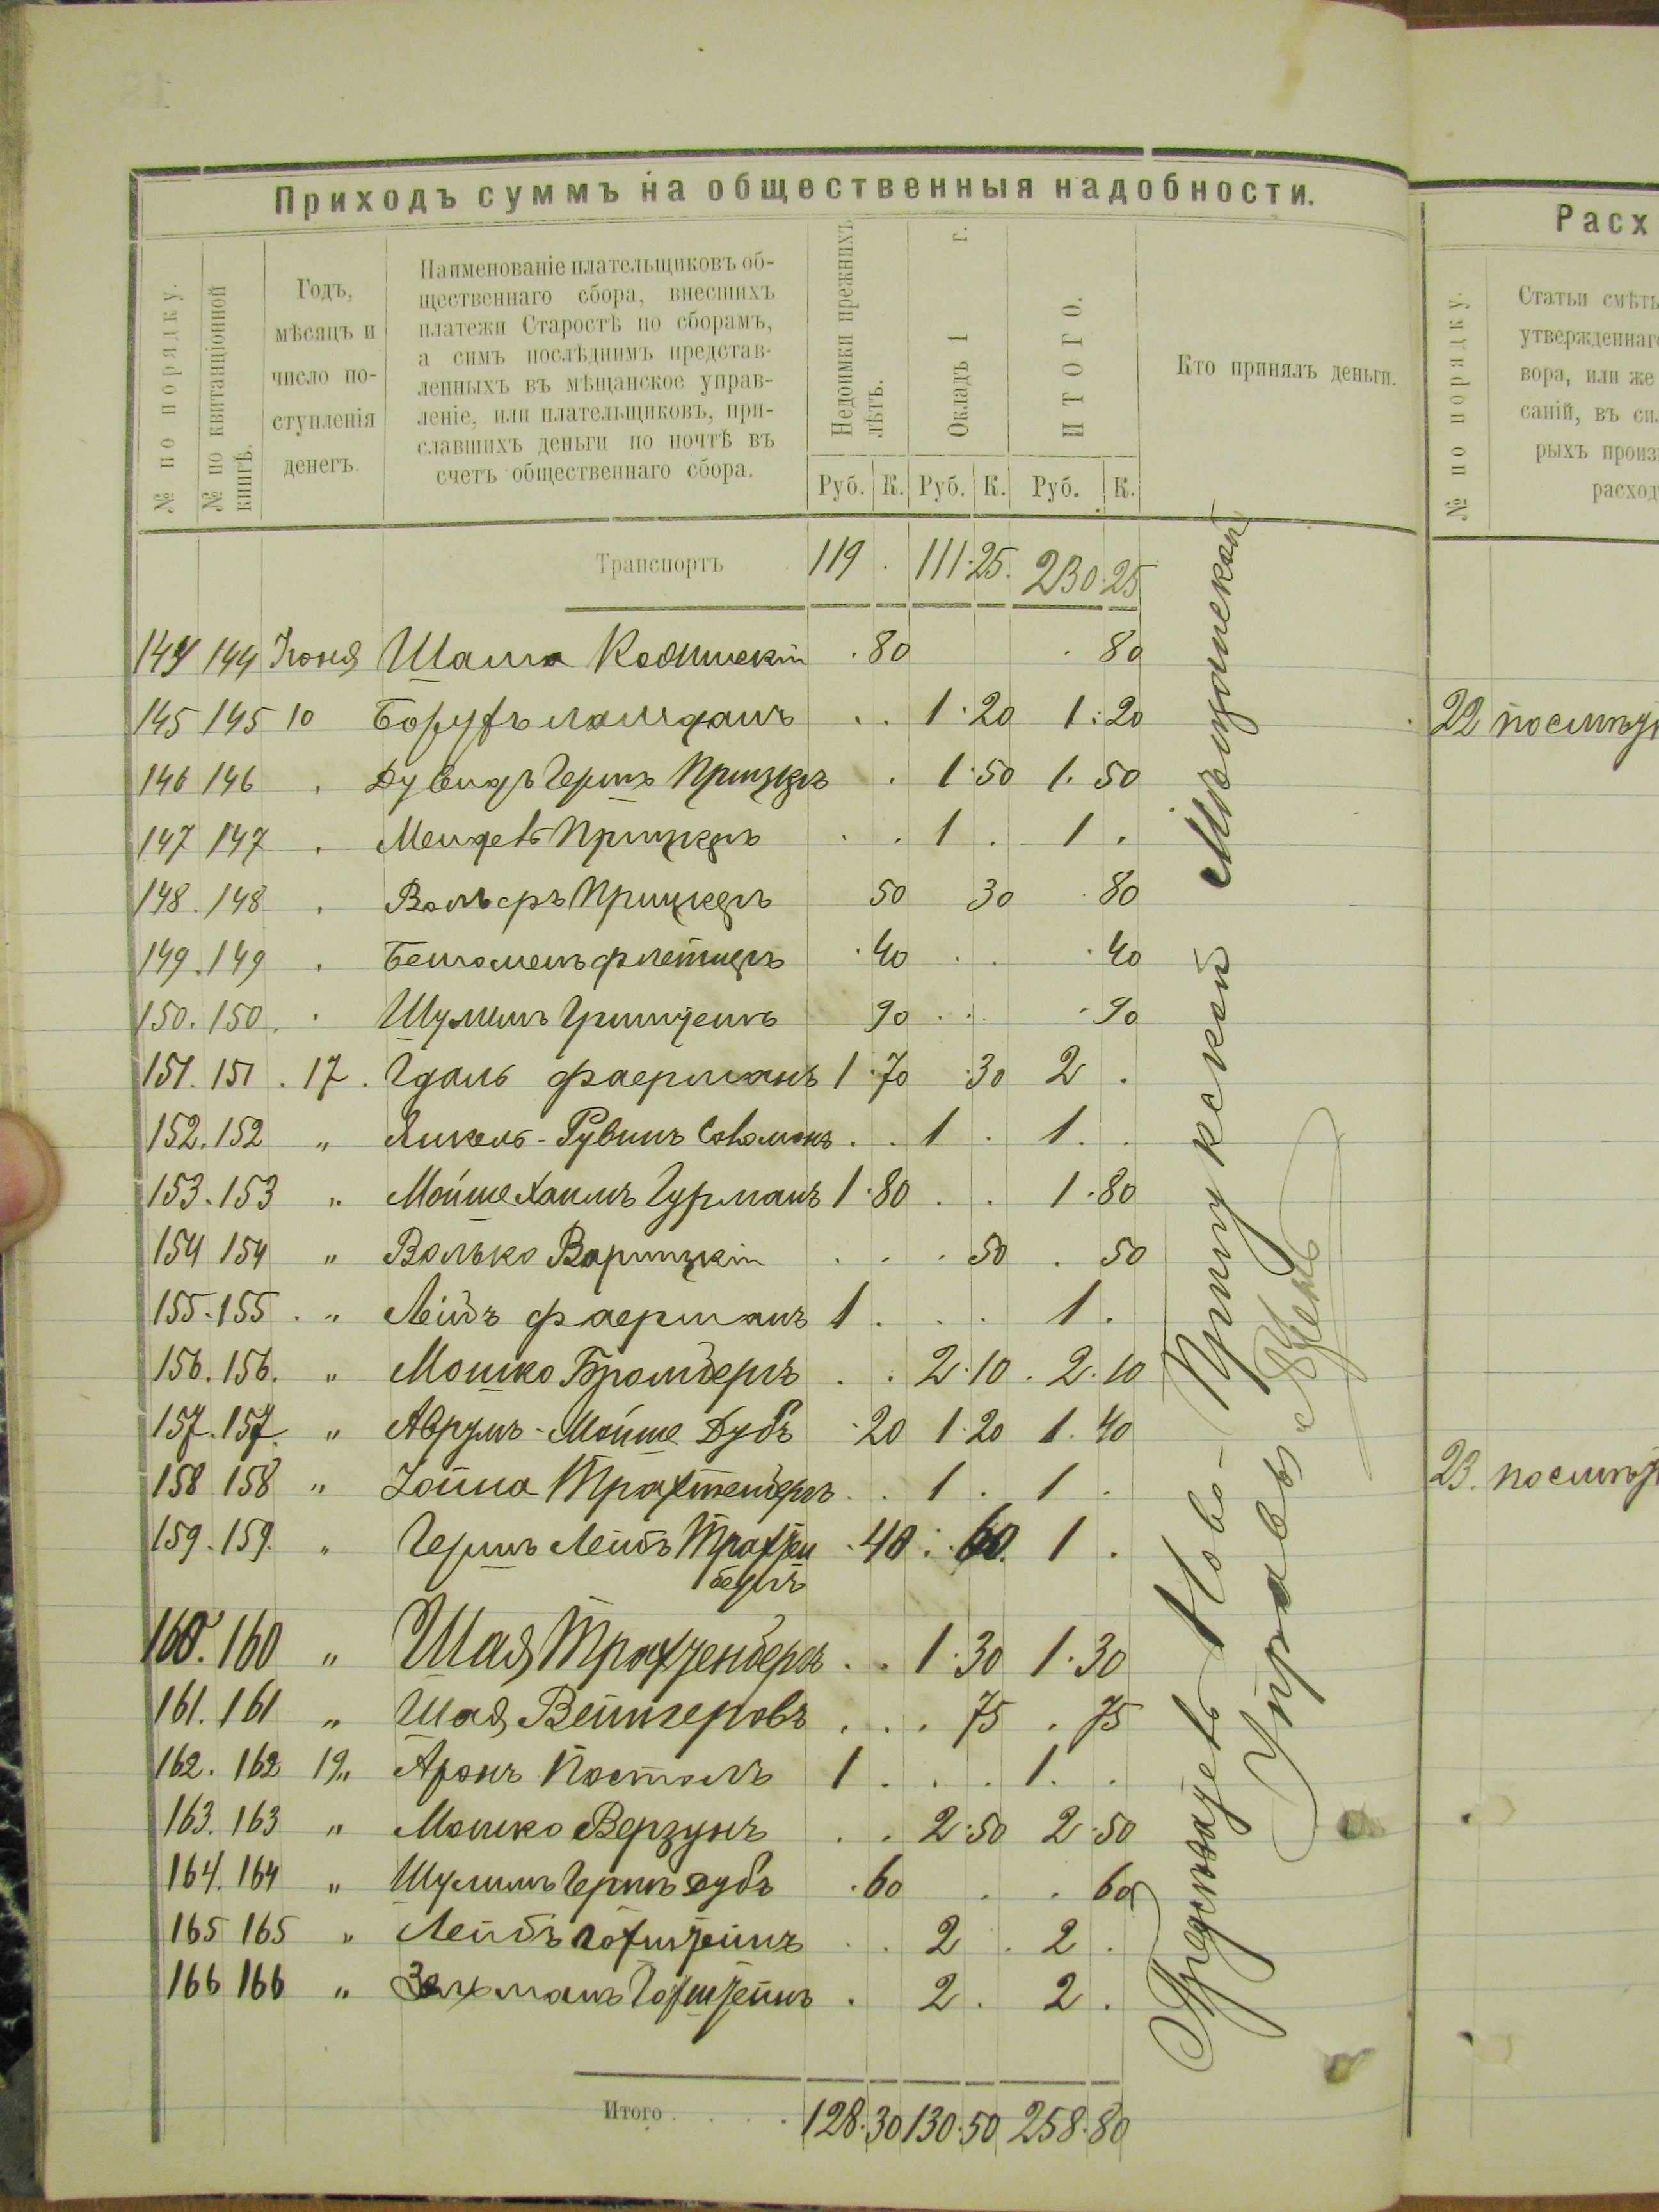 Приходъ суммъ на общественныя надобности.
№ по порядку.
№ по квитанціонной
книгѣ.
Годъ,
мѣсяцъ и
число по-
ступленія
денегъ.
Наименованіе плательщиковъ об-
щественнаго сбора, внесшихъ
платежи Старостѣ по сборамъ,
а симъ послѣднимъ представ-
ленныхъ въ мѣщанское управ-
леніе, или плательщиковъ, при-
славшихъ деньги по почтѣ въ
счетъ общественнаго сбора.
Недоимки прежнихъ
лѣтъ.
Окладъ 1 г.
ИТОГО.
Кто принялъ деньги.
Руб. К. Руб. К. Руб. К.
Транспортъ 119 . 111.25. 230.25
144 144 Іюня Шама 80 80
145 145 10 Борухъ 1.20 1.20
146 146 Дувидъ Гершъ Прицкеръ 1.50 1.50
147 147 Мендель Прицкеръ 1 . 1 .
148. 148 Вольфъ Прицкеръ 50 30 80
149. 149 40 40
150. 150. Шулимъ 90 90
151. 151 . 17. Идаль Фаерманъ 1.70 .30 2 .
152. 152 „ Янкель-Рувинъ Соломонъ . . 1 . 1. .
153. 153 „ Мойше Хаимъ Гурманъ 1.80 . . 1.80
154 154 „ Волько Варшицкій . . . 50 . 50
155. 155 . „ Лейбъ Фаерманъ 1 . . . 1 .
156. 156. „ Мошко Бромбергъ . . 2.10 . 2.10
157. 157. „ Аврумъ-Мойше Дубъ .20 1.20 1.40
158 158 „ Іойна Трахтенбергъ . . 1 . 1 .
159. 159. „ Гершъ Лейбъ Трахтен .40 . 60. 1 .
бергъ
160. 160 „ Шая Трахтенбергъ . . 1.30 1.30
161. 161 „ Шая Вейнгеровъ . . . 75 . 75
162. 162 19 „ Аронъ Постолъ 1 . . . 1. .
163. 163 „ Мошко Верзунъ . . 2.50 2.50
164. 164 „ Шулимъ Гершъ Дубъ .60 . . 60
165 165 „ Лейбъ Гохштейнъ . . 2 . 2 .
166 166 „ Зельманъ Гохштейнъ . 2 . 2 .
Итого . . . . 128.30 130.50 258.80
Ново-Прилукской Мѣщанской
Управы
Расх
№ по порядку.
Статьи смѣты
утвержденнаго
вора, или же
саній, въ сил
рыхъ произ
расход
22
23.